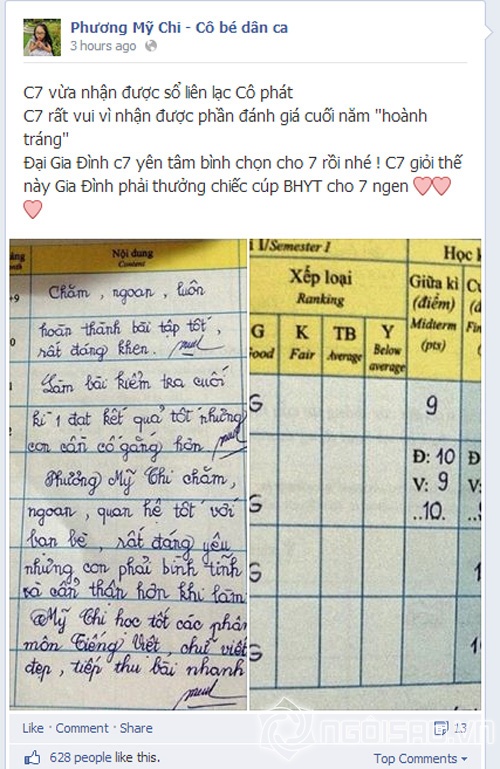 Phương Mỹ Chi - Cô bé dân ca
3 hours ago
C7 vừa nhận được sổ liên lạc Cô phát
C7 rất vui vì nhận được phần đánh giá cuối năm "hoành
tráng"
Đại Gia Đình c7 yên tâm bình chọn cho 7 rồi nhé ! C7 giỏi thế
này Gia Đình phải thưởng chiếc cúp BHYT cho 7 ngen
Nội dung
Content
Chăm, ngoan, luôn
hoàn thành bài tập tốt,
rất đáng khen.
Làm bài kiểm tra cuối
kì 1 đạt kết quả tốt nhưng
con cần cố gắng hơn
Phương Mỹ Chi chăm,
ngoan, quan hệ tốt với
bạn bè, rất đáng yêu
nhưng con phải bình tĩnh
và cẩn thận hơn khi làm
Mỹ Chi học tốt các phân
môn Tiếng Việt, chữ viết
đẹp, tiếp thu bài nhanh
I/Semester I
Xếp loại
Ranking
Học k
Giữa kì
(điểm)
Midterm
(pts)
G
ood
K
Fair
TB
Average
Y
Below
average
G
9
Đ: 10
V: 9
..10.
G
G
G
Like · Comment · Share
13
NGÔISAO.VN
628 people like this.
Top Comments